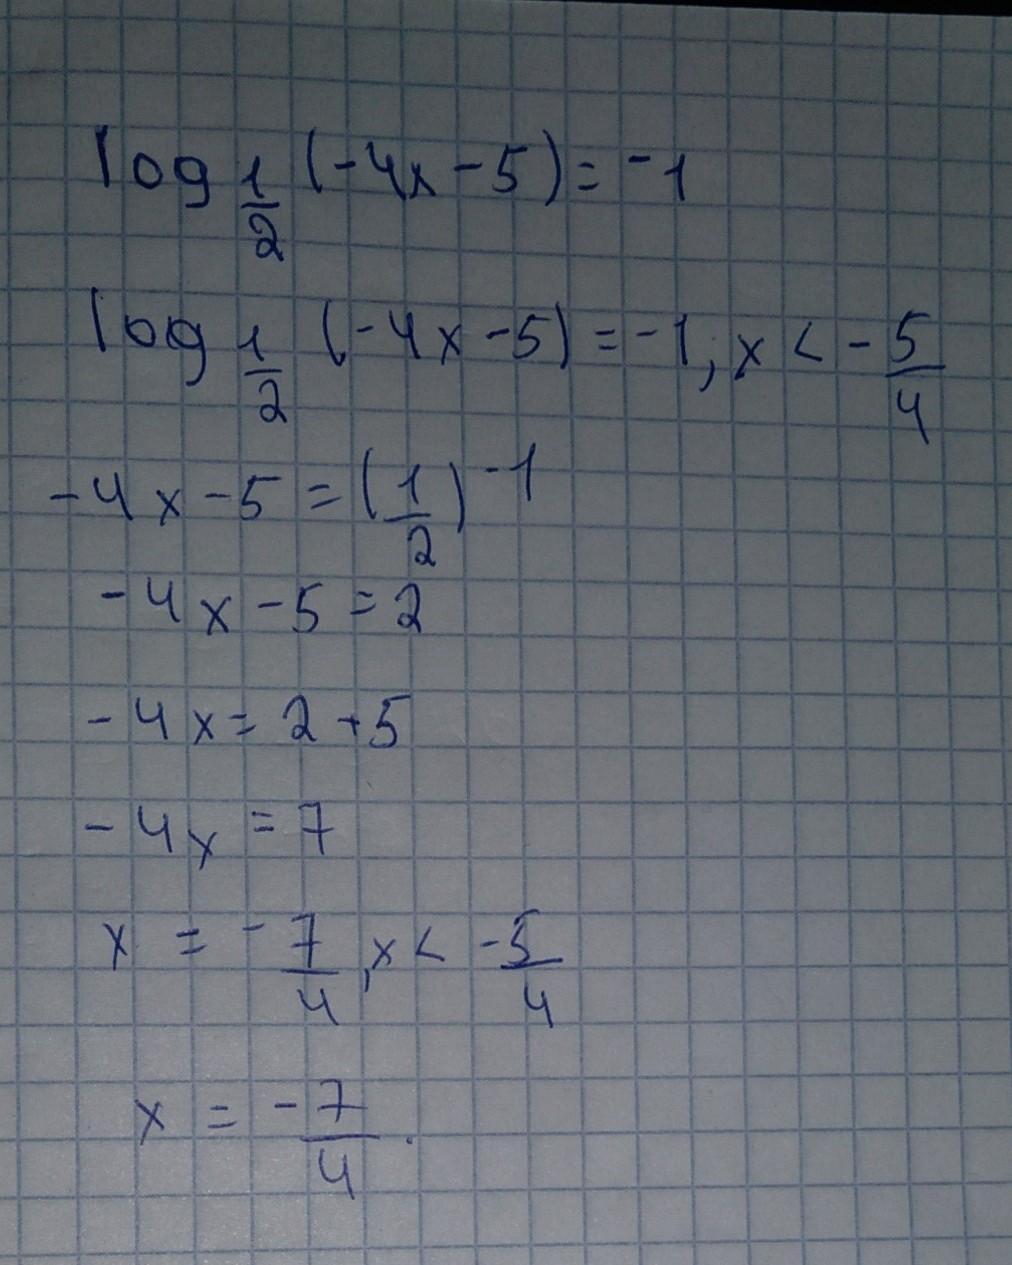 log 1/2 (-4x-5)=-1
log 1/2 (-4x-5)=-1, x < -5/4
-4x-5=(1/2)^-1
-4x-5=2
-4x=2+5
-4x=7
x = -7/4, x < -5/4
x = -7/4.